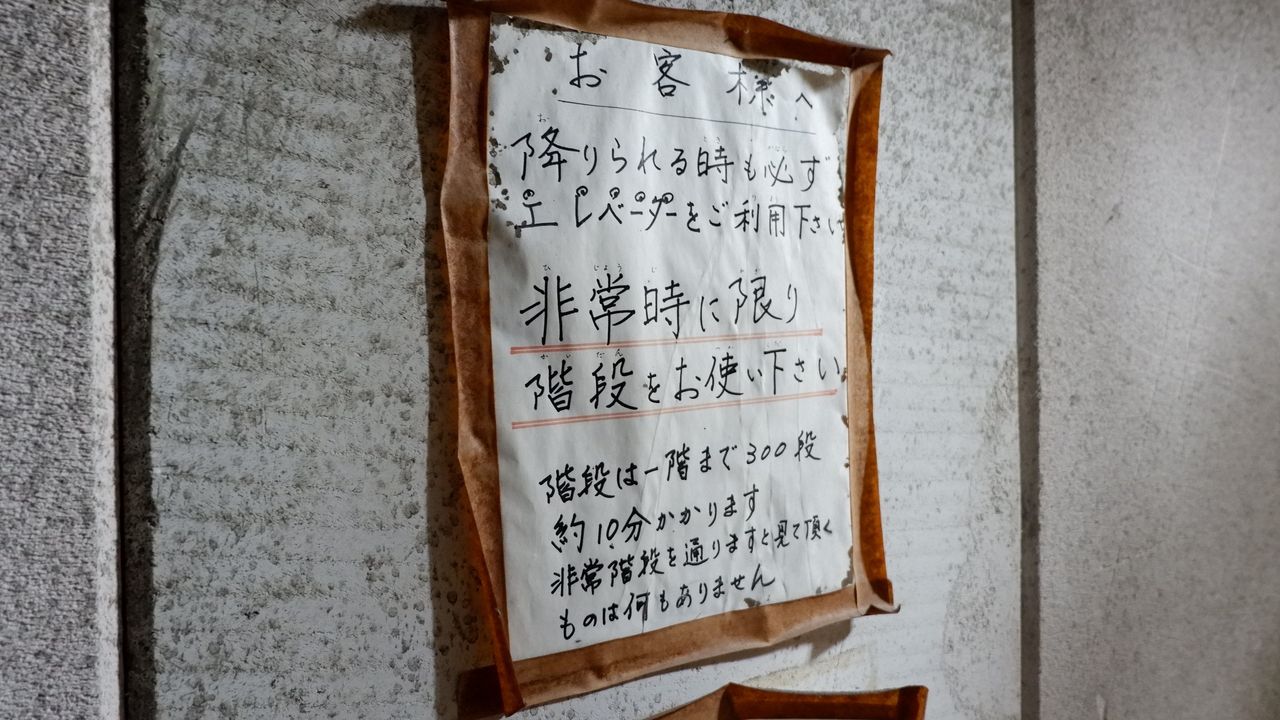 お客様へ
降りられる時も必ず
エレベーターをご利用下さい
非常時に限り
階段をお使い下さい
階段は一階まで300段
約10分かかります
非常階段を通りますと見て頂く
ものは何もありません